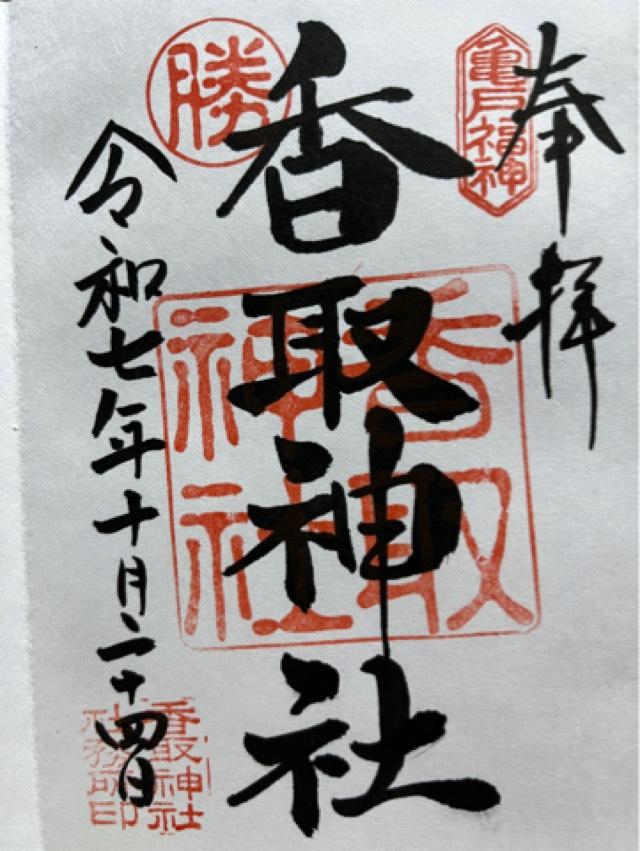 奉拝
亀戸福神
香取神社
勝
香取神社
令和七年十月二十四日
香取神社
社務所印